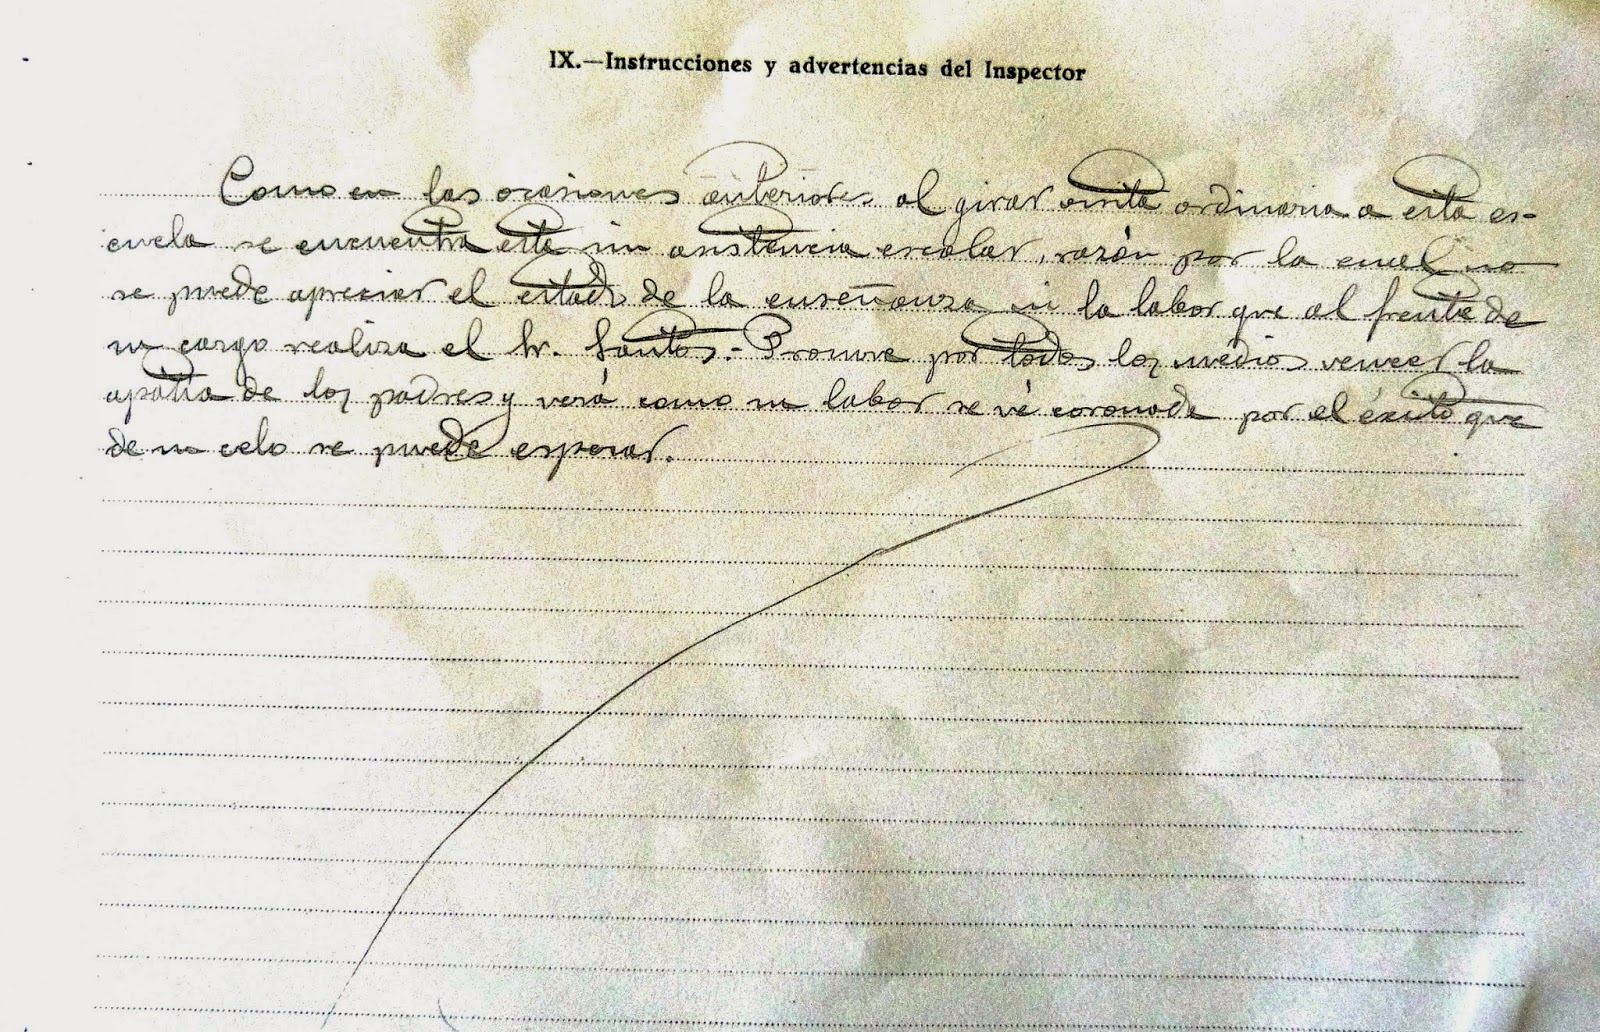 IX.—Instrucciones y advertencias del Inspector
Como en las ocasiones anteriores al girar visita ordinaria a esta es-
cuela se encuentra esta sin asistencia escolar, razón por la cual no
se puede apreciar el estado de la enseñanza ni la labor que al frente de
su cargo realiza el Sr. Santos.- Procure por todos los medios vencer la
apatía de los padres y verá como su labor se vé coronada por el éxito que
de su celo se puede esperar.